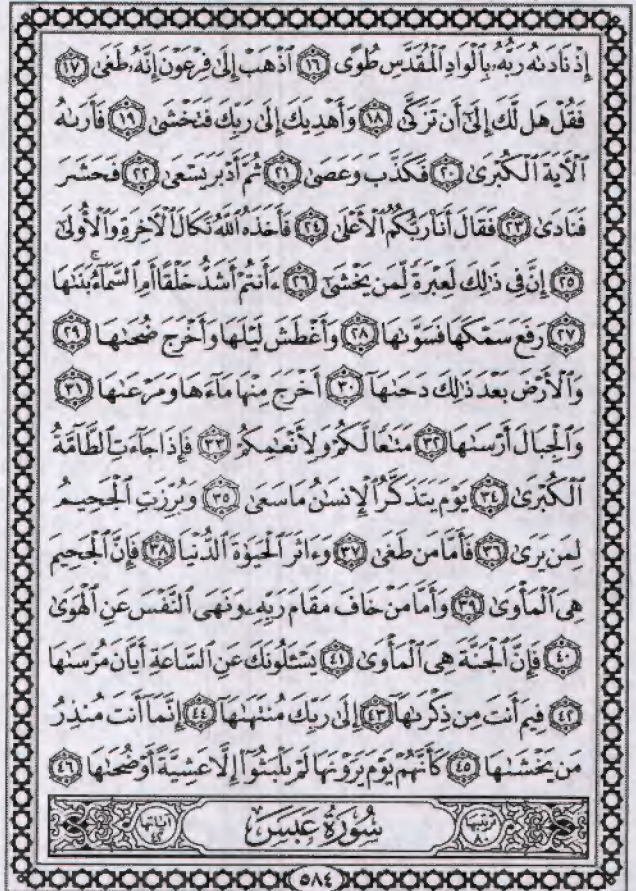 إِذْ نَادَىٰهُ رَبُّهُۥ بِٱلْوَادِ ٱلْمُقَدَّسِ طُوًى ١٦ ٱذْهَبْ إِلَىٰ فِرْعَوْنَ إِنَّهُۥ طَغَىٰ ١٧
فَقُلْ هَل لَّكَ إِلَىٰٓ أَن تَزَكَّىٰ ١٨ وَأَهْدِيَكَ إِلَىٰ رَبِّكَ فَتَخْشَىٰ ١٩ فَأَرَىٰهُ
ٱلْأَيَةَ ٱلْكُبْرَىٰ ٢٠ فَكَذَّبَ وَعَصَىٰ ٢١ ثُمَّ أَدْبَرَ يَسْعَىٰ ٢٢ فَحَشَرَ
فَنَادَىٰ ٢٣ فَقَالَ أَنَا۠ رَبُّكُمُ ٱلْأَعْلَىٰ ٢٤ فَأَخَذَهُ ٱللَّهُ نَكَالَ ٱلْأَخِرَةِ وَٱلْأُولَىٰٓ
٢٥ إِنَّ فِى ذَٰلِكَ لَعِبْرَةً لِّمَن يَخْشَىٰٓ ٢٦ ءَأَنتُمْ أَشَدُّ خَلْقًا أَمِ ٱلسَّمَآءُ ۚ بَنَىٰهَا
٢٧ رَفَعَ سَمْكَهَا فَسَوَّىٰهَا ٢٨ وَأَغْطَشَ لَيْلَهَا وَأَخْرَجَ ضُحَىٰهَا ٢٩
وَٱلْأَرْضَ بَعْدَ ذَٰلِكَ دَحَىٰهَآ ٣٠ أَخْرَجَ مِنْهَا مَآءَهَا وَمَرْعَىٰهَا ٣١
وَٱلْجِبَالَ أَرْسَىٰهَا ٣٢ مَتَٰعًا لَّكُمْ وَلِأَنْعَٰمِكُمْ ٣٣ فَإِذَا جَآءَتِ ٱلطَّآمَّةُ
ٱلْكُبْرَىٰ ٣٤ يَوْمَ يَتَذَكَّرُ ٱلْإِنسَٰنُ مَا سَعَىٰ ٣٥ وَبُرِّزَتِ ٱلْجَحِيمُ
لِمَن يَرَىٰ ٣٦ فَأَمَّا مَن طَغَىٰ ٣٧ وَءَاثَرَ ٱلْحَيَوٰةَ ٱلدُّنْيَا ٣٨ فَإِنَّ ٱلْجَحِيمَ
هِىَ ٱلْمَأْوَىٰ ٣٩ وَأَمَّا مَنْ خَافَ مَقَامَ رَبِّهِۦ وَنَهَى ٱلنَّفْسَ عَنِ ٱلْهَوَىٰ
٤٠ فَإِنَّ ٱلْجَنَّةَ هِىَ ٱلْمَأْوَىٰ ٤١ يَسْـَٔلُونَكَ عَنِ ٱلسَّاعَةِ أَيَّانَ مُرْسَىٰهَا
٤٢ فِيمَ أَنتَ مِن ذِكْرَىٰهَآ ٤٣ إِلَىٰ رَبِّكَ مُنتَهَىٰهَآ ٤٤ إِنَّمَآ أَنتَ مُنذِرُ
مَن يَخْشَىٰهَا ٤٥ كَأَنَّهُمْ يَوْمَ يَرَوْنَهَا لَمْ يَلْبَثُوٓا۟ إِلَّا عَشِيَّةً أَوْ ضُحَىٰهَا ٤٦
ترتيبها ٨٠ سُورَةُ عَبَسَ آياتها ٤٢
٥٨٤